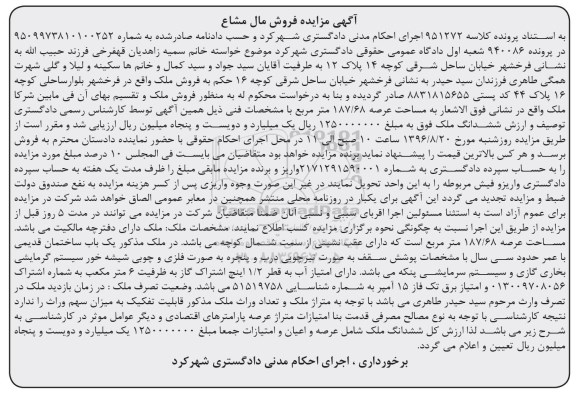 آگهی مزایده فروش مال مشاع
به استناد پرونده کلاسه ۹۵۱۲۷۲ اجرای احکام مدنی دادگستری شهرکرد و حسب دادنامه صادرشده به شماره ۹۵۰۹۹۷۳۸۱۰۱۰۰۲۵۲
در پرونده ۹۴۰۰۸۶ شعبه اول دادگاه عمومی حقوقی دادگستری شهرکرد موضوع خواسته خانم سمیه زاهدیان قهفرخی فرزند حبیب الله به
نشانی فرخشهر خیابان ساحل شرقی کوچه ۱۴ پلاک ۱۲ به طرفیت آقایان سید جواد و سید کمال و خانم ها سکینه و لیلا و گلی شهرت
همگی طاهری فرزندان سید حیدر به نشانی فرخشهر خیابان ساحل شرقی کوچه ۱۶ حکم به فروش ملک واقع در فرخشهر بلوارساحلی کوچه
۱۶ پلاک ۴۴ کد پستی ۸۸۳۱۸۱۵۶۵۵ صادر گردیده و بنا به درخواست محکوم له به منظور فروش ملک و تقسیم بهای آن فی مابین شرکا
ملک واقع در نشانی فوق الاشعار به مساحت عرصه ۱۸۷/۶۸ متر مربع با مشخصات فنی ذیل همین آگهی توسط کارشناس رسمی دادگستری
توصیف و ارزش ششدانگ ملک فوق به مبلغ ۱۲۵۰۰۰۰۰۰۰ ریال یک میلیارد و دویست و پنجاه میلیون ریال ارزیابی شد و مقرر است از
طریق مزایده روزشنبه مورخ ۱۳۹۶/۸/۲۰ ساعت ۱۰ صبح الی ۱۱ در محل اجرای احکام حقوقی با حضور نماینده دادستان محترم به فروش
برسد و هر کس بالاترین قیمت را پیشنهاد نماید برنده مزایده خواهد بود متقاضیان می بایست فی المجلس ۱۰ درصد مبلغ مورد مزایده
را به حساب سپرده دادگستری به شماره واریز و برنده مزایده مابقی مبلغ را ظرف مدت یک هفته به حساب سپرده
دادگستری واریزو فیش مربوطه را به این واحد تحویل نمایند در غیر این صورت وجوه واریزی پس از کسر هزینه مزایده به نفع صندوق دولت
ضبط و مزایده تجدید می گردد این آگهی برای یکبار در روزنامه محلی منتشر همچنین در معابر عمومی الصاق خواهد شد شرکت در مزایده
برای عموم آزاد است به استثنا مسئولین اجرا اقربای نسبی و سببی آنان ضمنا متقاضیان شرکت در مزایده می توانند در مدت ۵ روز قبل از
مزایده از طریق این اجرا نسبت به چگونگی نحوه برگزاری مزایده کسب اطلاع نمایند. مشخصات ملک: ملک دارای دفترچه مالکیت می باشد.
مساحت عرصه ۱۸۷/۶۸ متر مربع است که دارای عقب نشینی از سمت شمال کوچه می باشد. در ملک مذکور یک باب ساختمان قدیمی
با عمر حدود سی سال با مشخصات پوشش سقف به صورت تیرچوبی دارد و پنجره به صورت فلزی و چوبی شیشه خور سیستم گرمایشی
بخاری گازی و سیستم سرمایشی پنکه می باشد. دارای امتیاز آب به قطر ۱/۲ اینچ اشتراک گاز به ظرفیت ۶ متر مکعب به شماره اشتراک
۰۱۳۰۰۹۷۰۸۰۵۶ و امتیاز برق تک فاز ۱۵ آمپر به شماره شناسایی ۵۱۵۱۹۷۵۸ می باشد. وضعیت تصرف ملک : در زمان بازدید ملک در
تصرف وارث مرحوم سید حیدر طاهری می باشد با توجه به متراژ ملک و تعداد وراث ملک مذکور قابلیت تفکیک به میزان سهم وراث را ندارد
نتیجه کارشناسی با توجه به نوع مصالح مصرفی قدمت بنا امتیازات متراژ عرصه پارامترهای اقتصادی و دیگر عوامل موثر در کارشناسی به
شرح زیر می باشد لذا ارزش کل ششدانگ ملک شامل عرصه و اعیان و امتیازات جمعا مبلغ ۱۲۵۰۰۰۰۰۰۰ یک میلیارد و دویست و پنجاه
میلیون ریال تعیین و اعلام می گردد.
برخورداری ، اجرای احکام مدنی دادگستری شهرکرد